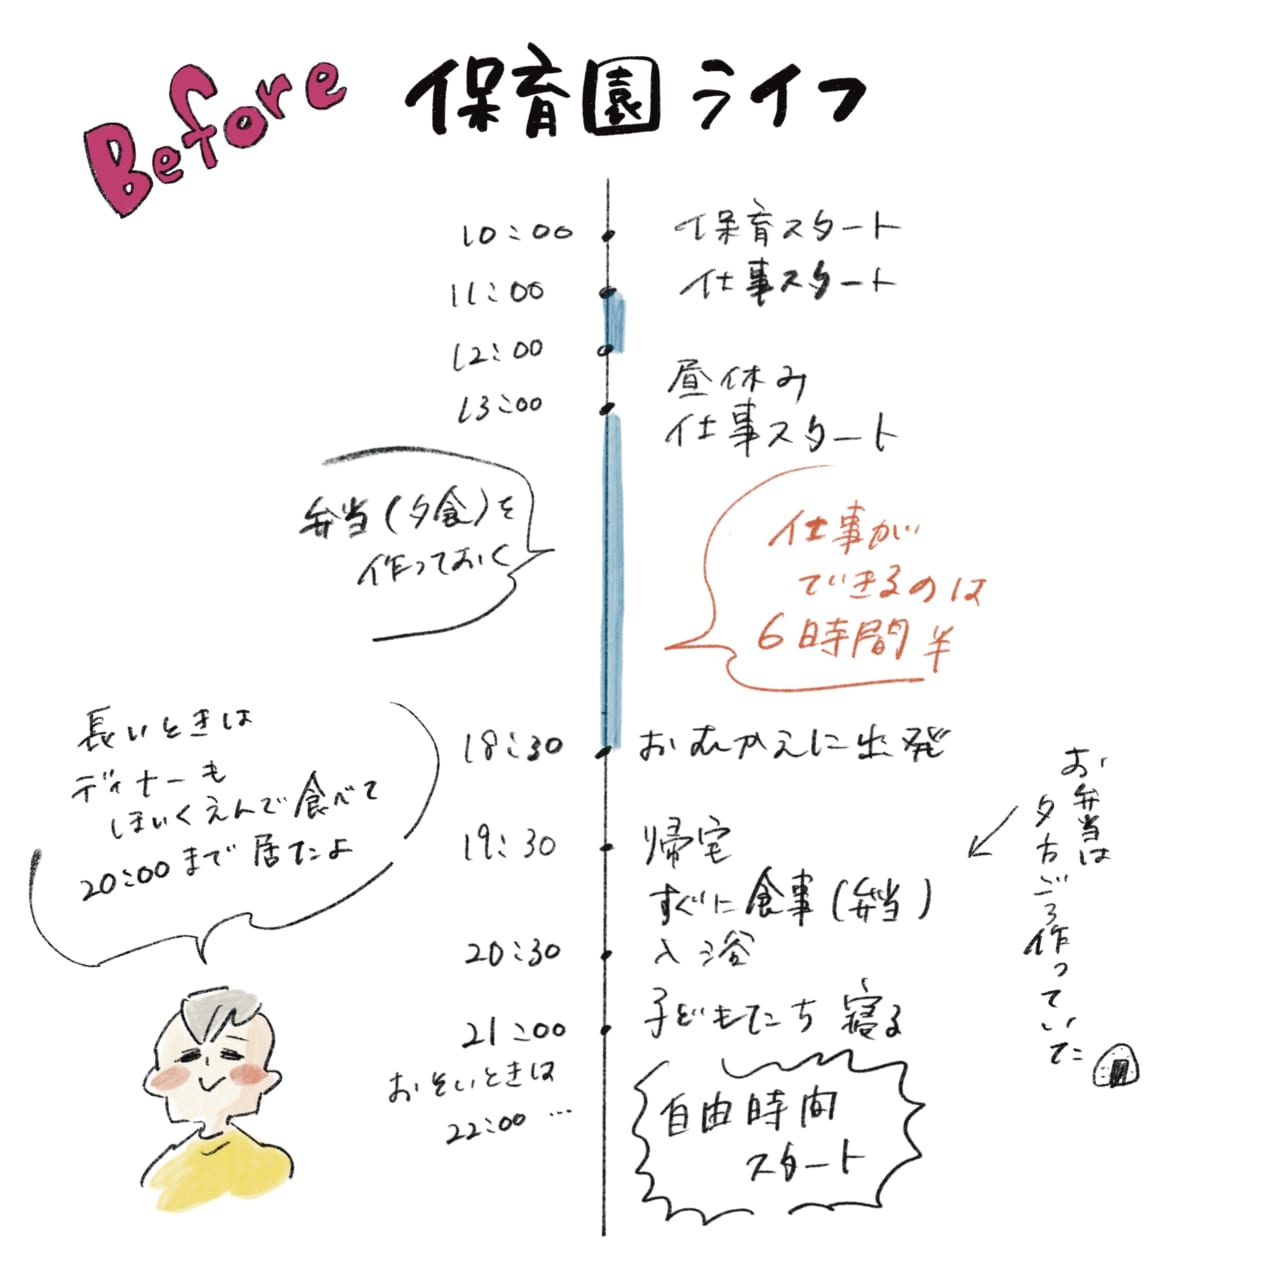 Before 保育園ライフ
10:00 保育スタート
11:00 仕事スタート
12:00 昼休み
13:00 仕事スタート
弁当(夕食)を
作っておく
仕事が
できるのは
6時間半
長いときは
ディナーも
ほいくえんで食べて
20:00まで居たよ
18:30 おむかえに出発
19:30 帰宅
すぐに食事(弁当)
お弁当は
夕方ごろ作っていた
20:30 入浴
21:00 子どもたち寝る
おそいときは
22:00…
自由時間
スタート